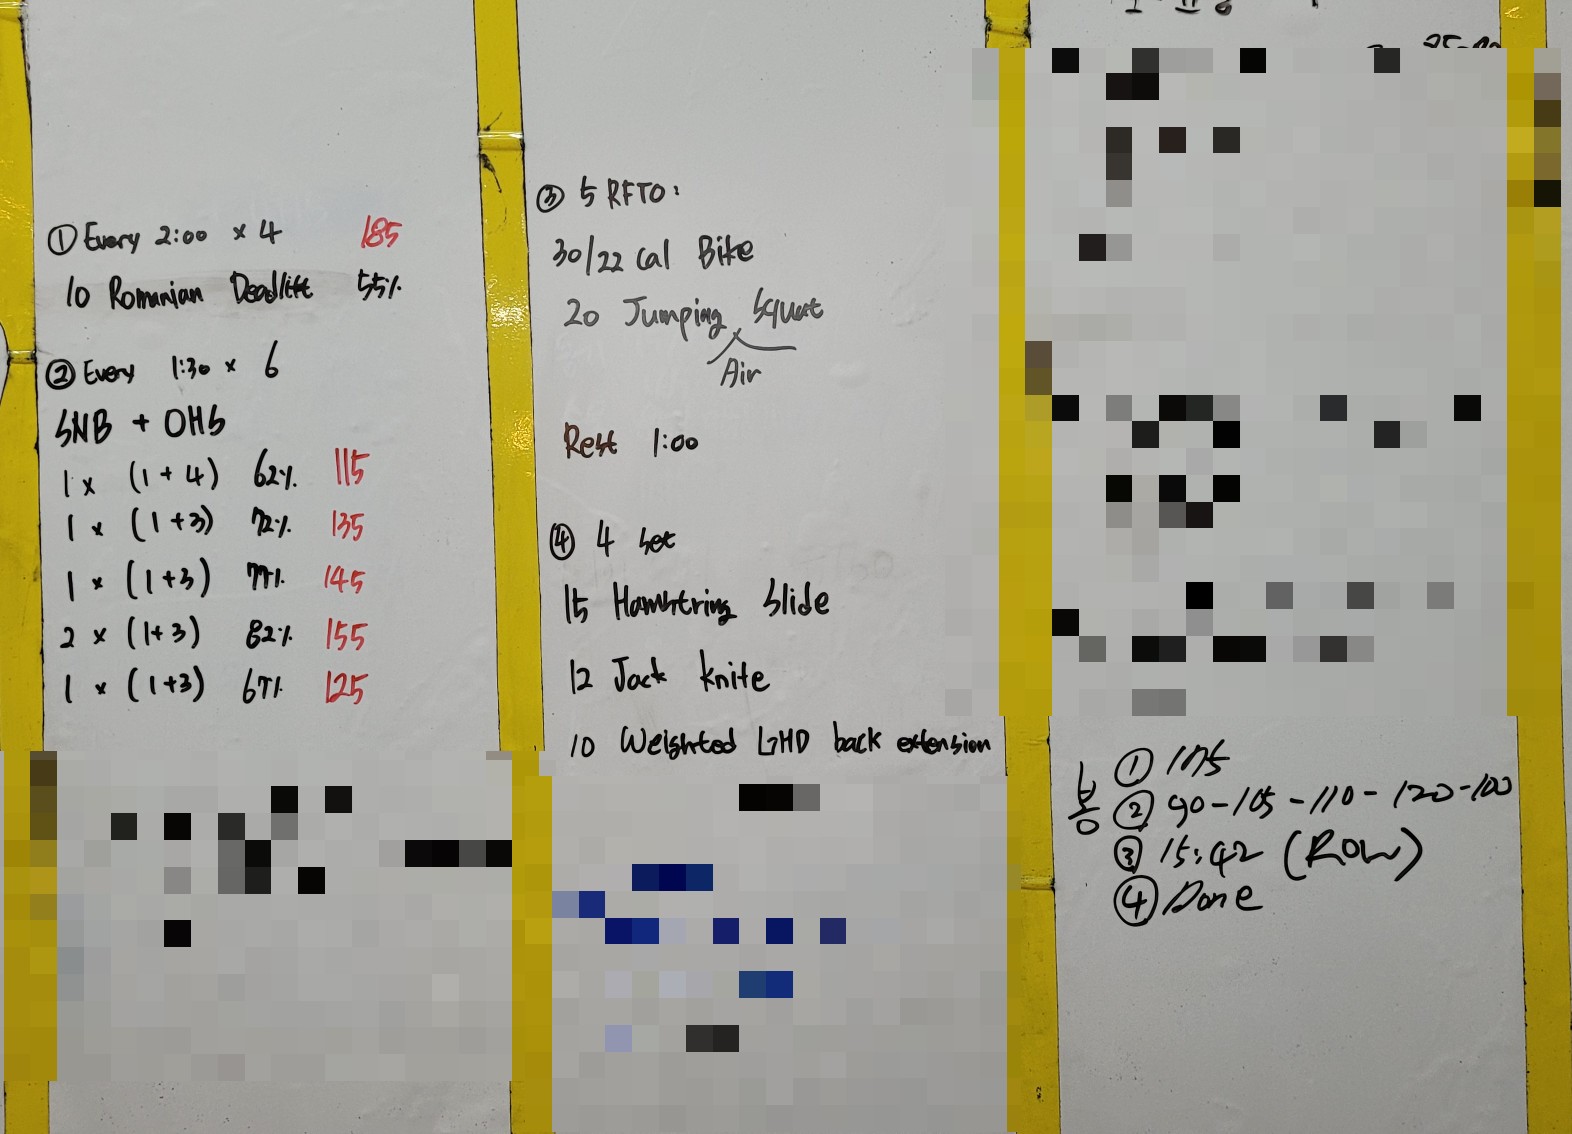 ① Every 2:00 × 4 185
10 Romanian Deadlift 55%
② Every 1:30 × 6
SNB + OHS
1 × (1 + 4) 62% 115
1 × (1+3) 72% 135
1 × (1+3) 77% 145
2 × (1+3) 82% 155
1 × (1+3) 67% 125
③ 5 RFTO:
30/22 Cal Bike
20 Jumping Squat
Air
Rest 1:00
④ 4 Set
15 Hamstring Slide
12 Jack knife
10 Weighted GHD back extension
봉
① 175
② 90-105-110-120-100
③ 15:42 (ROW)
④ Done